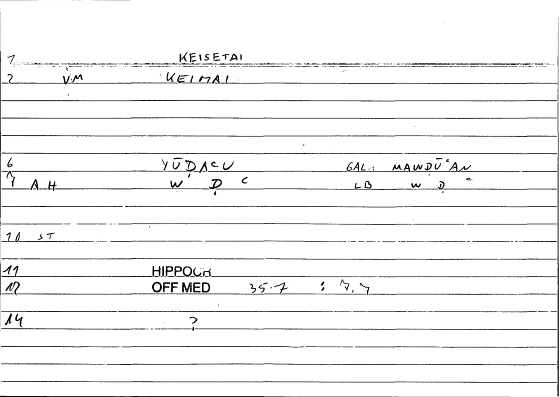 1 KEISETAI
2 V.M KEIMAI
6 YŪḌAʿU GAL.: MAWḌŪʿAN
7 A H W Ḍ ʿ LB W Ḍ ʿ
10 ST
11 HIPPOCR
12 OFF MED 35.7 :
14 ?